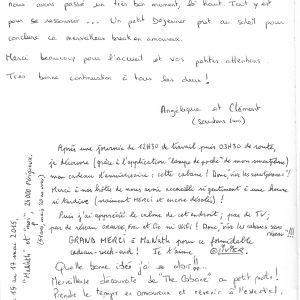 nous avons passé un très bon moment, là haut. Tout y est
pour se ressourcer... Un petit déjeuner prit au soleil pour
conclure ce merveilleux break en amoureux.
Merci beaucoup pour l'accueil et vos petites attentions.
Très bonne continuation à tous les deux !
Angélique et Clément
Après une journée de 12H30 de travail puis 03H30 de route,
je découvre (grâce à l'application "lampe de poche" de mon smartphone)
mon cadeau d'anniversaire : cette cabane ! Donc, "vive les smartphones" !
Merci à nos hôtes de nous avoir accueillis si gentiment à une heure
si tardive (vraiment MERCI et encore désolé) !
Puis j'ai apprécié le calme de cet endroit ; pas de TV ;
pas de réseau ORANGE, Free et Co ni WIFI ! Donc, "vive les cabanes sans
réseau" !!!
GRAND MERCI à Maklathi pour ce formidable
cadeau-week-end ! Je t'aime. OLIVIER
Quelle bonne idée j'ai eu alors !!...
Merveilleuse découverte de "The Cabane" au petit matin !
Prendre le temps en amoureux et revenir à l'essentiel.
16 au 17 mai 2015,
24000 Périgueux